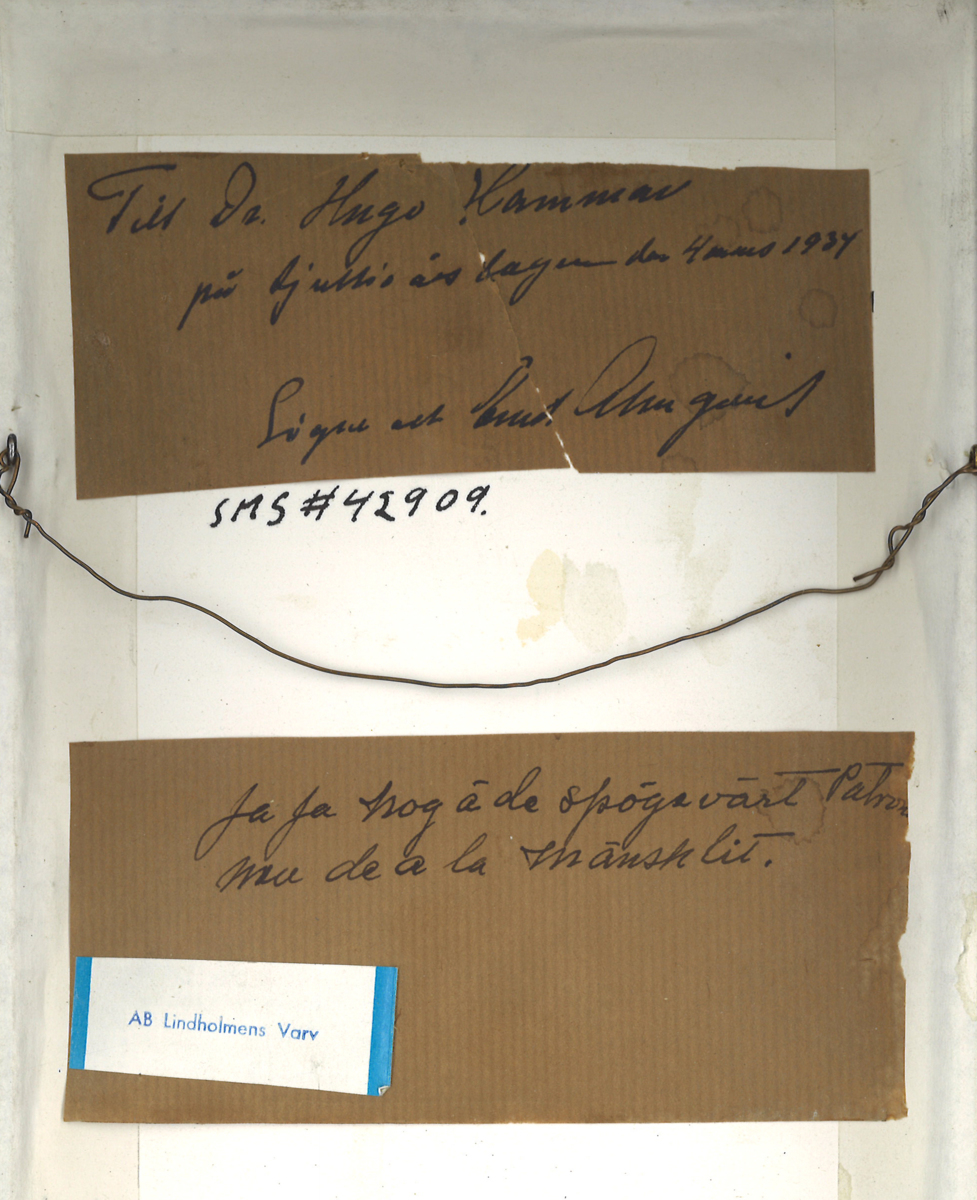 Till Dr. Hugo Hammar
på sjuttioårsdagen den 4 mars 1934
Signe och Knut Almquist
SMS #42909.
Ja Ja nog ä de spögsvårt Patron
men de a la mänsklit.
AB Lindholmens Varv